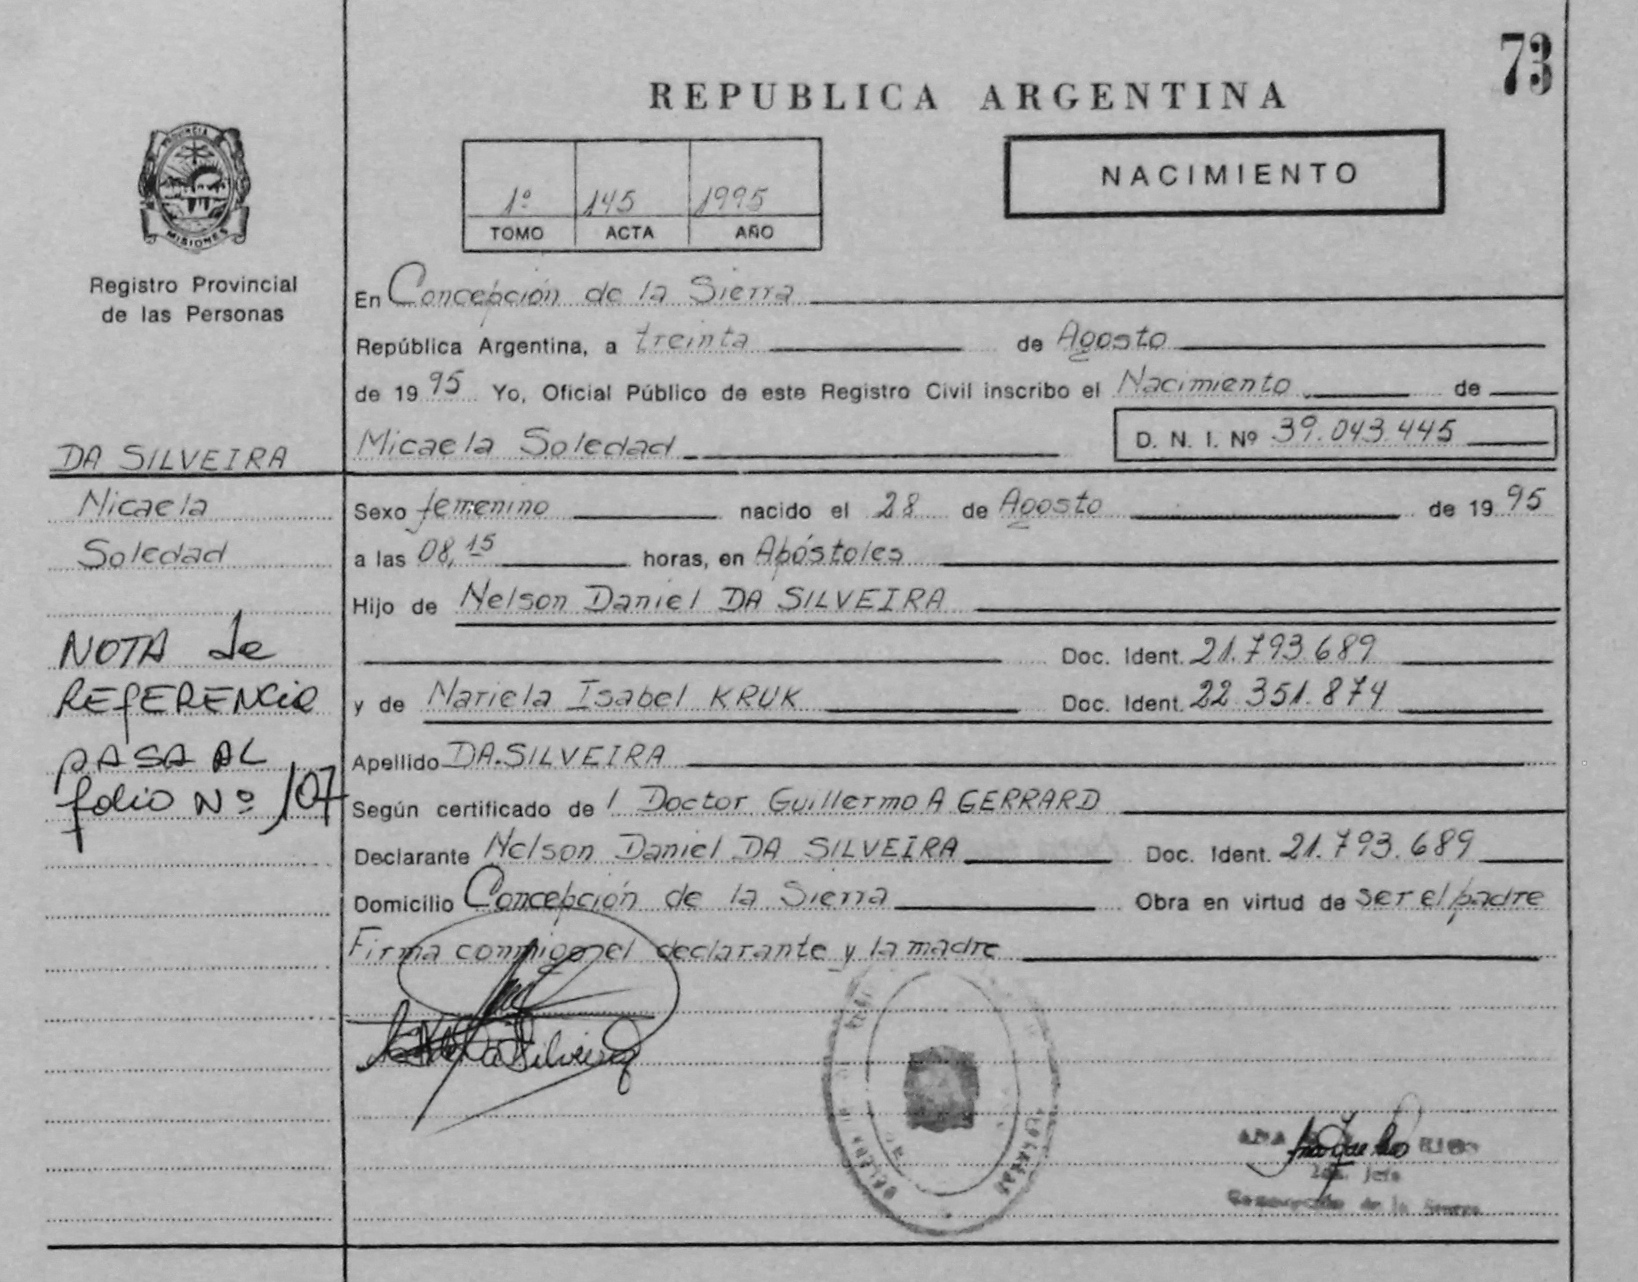 73
REPUBLICA ARGENTINA
PROVINCIA
MISIONES
Registro Provincial
de las Personas
1º 145 1995
TOMO ACTA AÑO
NACIMIENTO
En Concepción de la Sierra
República Argentina, a treinta de Agosto
de 1995 Yo, Oficial Público de este Registro Civil inscribo el Nacimiento de
Micaela Soledad D. N. I. Nº 39.043.445
DA SILVEIRA
Micaela
Soledad
NOTA de
REFERENCIA
PASA AL
folio Nº 107
Sexo femenino nacido el 28 de Agosto de 1995
a las 08,15 horas, en Apóstoles
Hijo de Nelson Daniel DA SILVEIRA
Doc. Ident. 21.793.689
y de Mariela Isabel KRUK Doc. Ident. 22.351.874
Apellido DA.SILVEIRA
Según certificado de l Doctor Guillermo A GERRARD
Declarante Nelson Daniel DA SILVEIRA Doc. Ident. 21.793.689
Domicilio Concepción de la Sierra Obra en virtud de ser el padre
Firma conmigo el declarante y la madre
Da Silveira
ANA
Jefa
Concepción de la Sierra